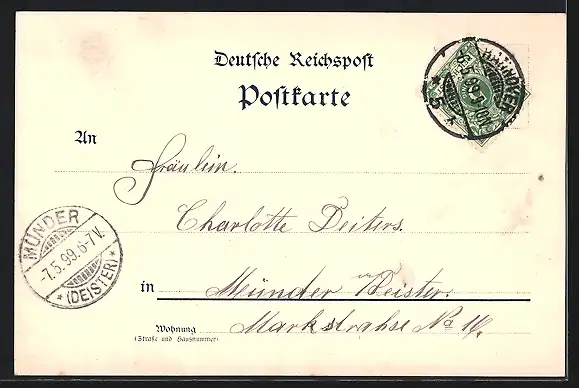 Deutsche Reichspost
Postkarte
HANNOVER
6.5.99.
* 5
An
Fräulein.
Charlotte Deiters.
MÜNDER
-7.5.99.6-7V.
* (DEISTER) *
in Münder a/ Deister.
Wohnung
(Straße und Hausnummer)
Markstrahse No 16.